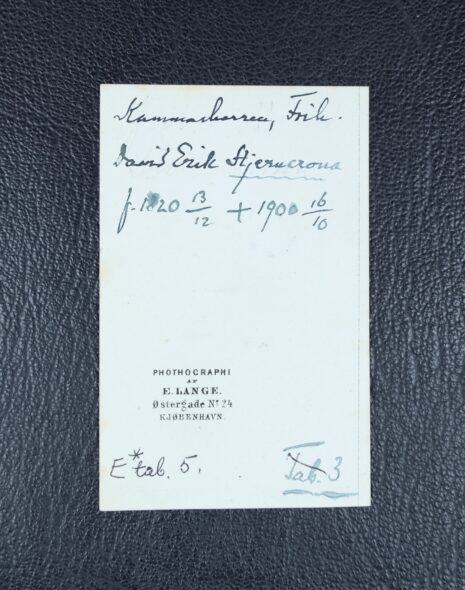 Kammarherren, Frih.
David Erik Stjerncrona
f. 1820 13/12 + 1900 16/10
PHOTHOGRAPHI
AF
E. LANGE.
Østergade Nº 24
KJØBENHAVN.
E* tab. 5.
Tab. 3